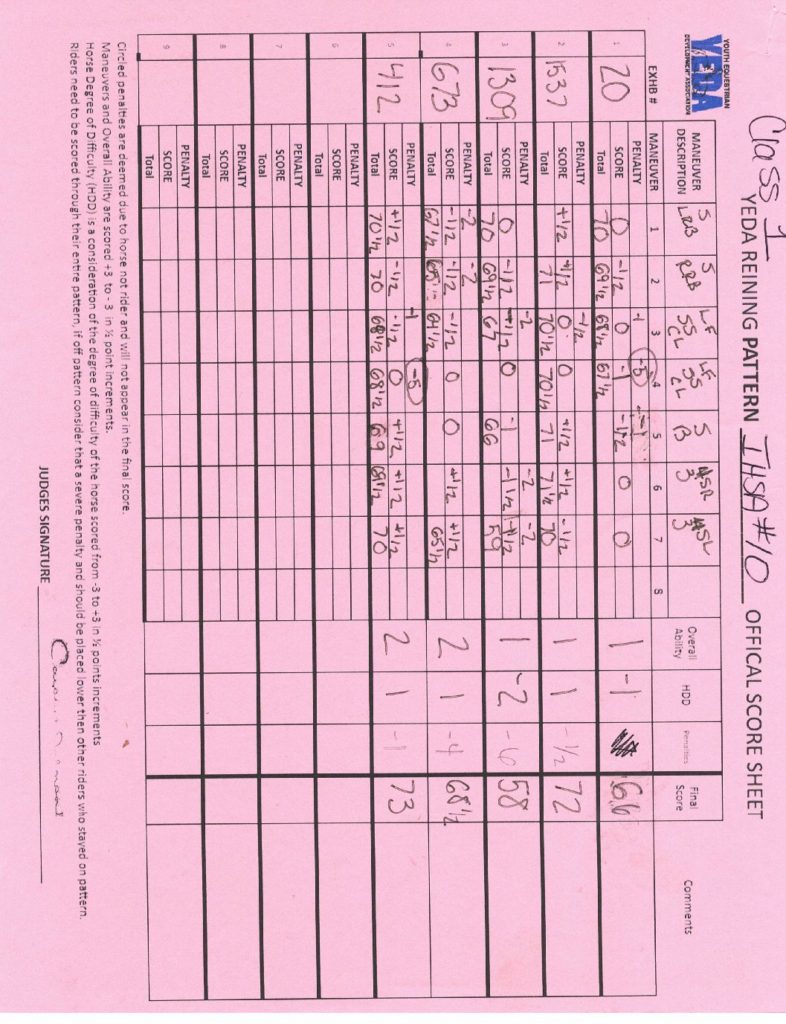 Class 1
YOUTH EQUESTRIAN
YEDA
DEVELOPMENT ASSOCIATION
YEDA REINING PATTERN IHSA #10 OFFICAL SCORE SHEET
EXHB # MANEUVER DESCRIPTION S LRB S RRB LF SS CL LF SS CL S B 4SR 3 4SL 3 Overall Ability HDD Penalties Final Score Comments
MANEUVER 1 2 3 4 5 6 7 8
1 20 PENALTY -1 (-5) -1
SCORE 0 -1/2 0 -1 -1/2 0 0 1 -1 66
Total 70 69 1/2 68 1/2 67 1/2
2 1537 PENALTY -1/2
SCORE +1/2 +1/2 0 0 +1/2 +1/2 -1/2 1 1 -1/2 72
Total 71 70 1/2 70 1/2 71 71 1/2 70
3 1309 PENALTY -2 -2 -2
SCORE 0 -1/2 +1/2 0 -1 -1 1/2 1 -2 -6 58
Total 70 69 1/2 67 66 59
4 673 PENALTY -2 -2
SCORE -1/2 -1/2 -1/2 0 0 +1/2 +1/2 2 1 -4 68 1/2
Total 67 1/2 65 1/2 64 1/2 65 1/2
5 412 PENALTY -1 (-5)
SCORE +1/2 -1/2 -1/2 0 +1/2 +1/2 +1/2 2 1 -1 73
Total 70 1/2 70 68 1/2 68 1/2 69 69 1/2 70
6 PENALTY
SCORE
Total
7 PENALTY
SCORE
Total
8 PENALTY
SCORE
Total
9 PENALTY
SCORE
Total
Circled penalties are deemed due to horse not rider and will not appear in the final score.
Maneuvers and Overall Ability are scored +3 to - 3 in ½ point increments.
Horse Degree of Difficulty (HDD) is a consideration of the degree of difficulty of the horse scored from -3 to +3 in ½ points increments
Riders need to be scored through their entire pattern, if off pattern consider that a severe penalty and should be placed lower then other riders who stayed on pattern.
JUDGES SIGNATURE